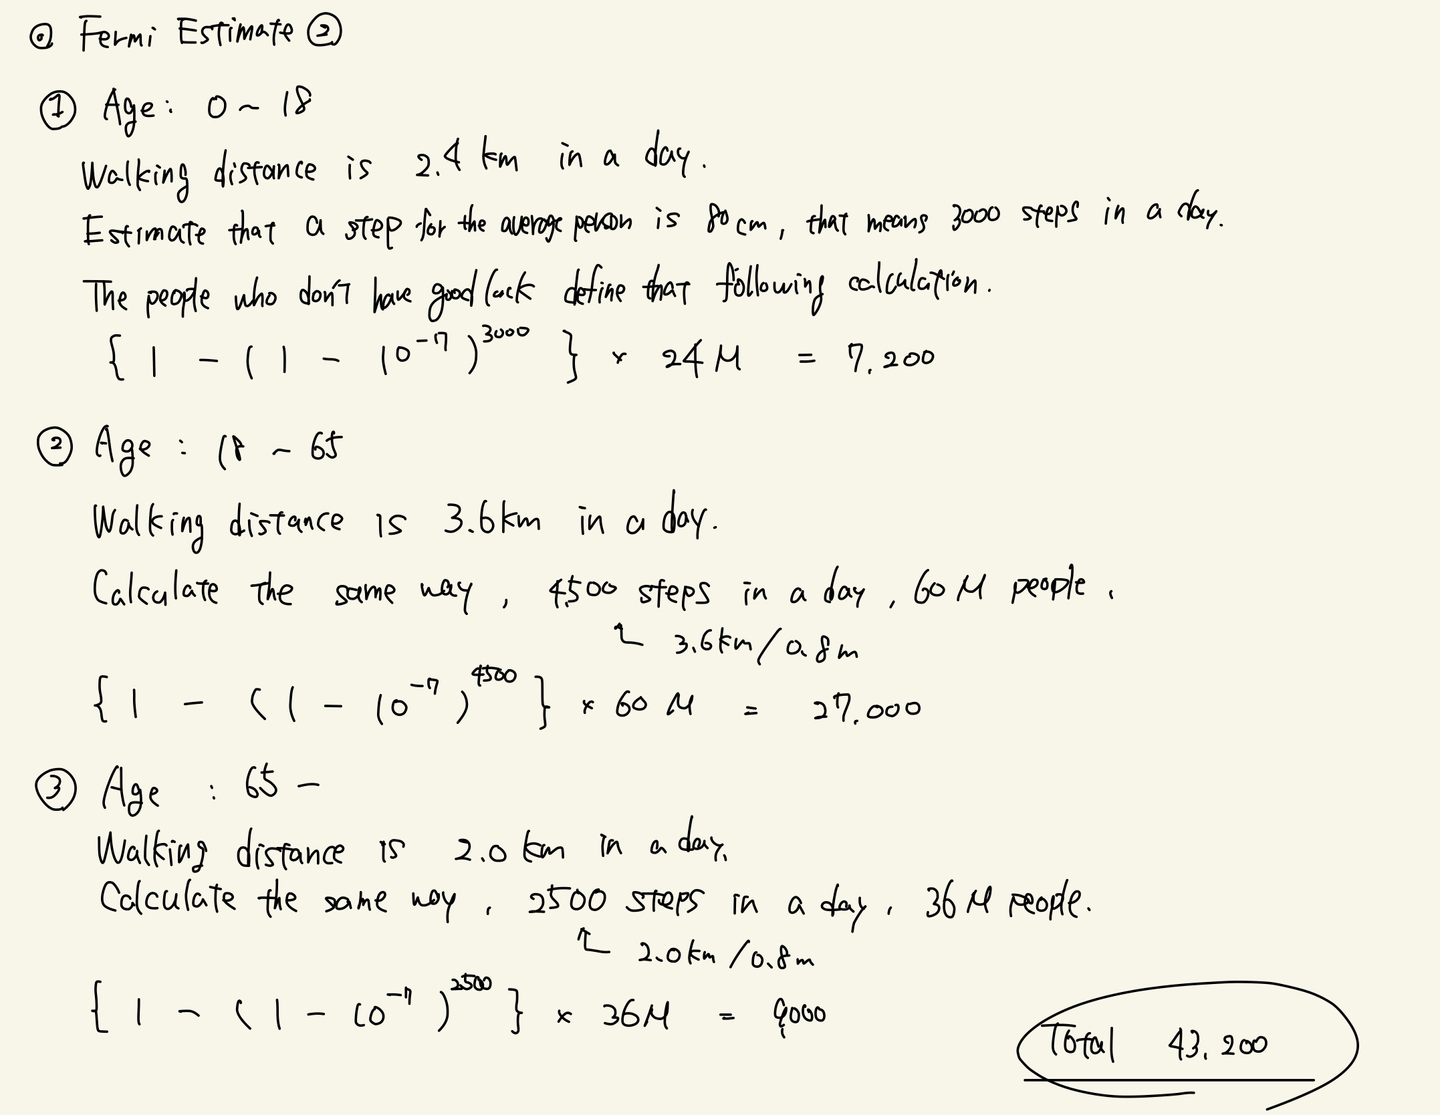 ◎ Fermi Estimate ②
① Age: 0 ~ 18
Walking distance is 2.4 km in a day.
Estimate that a step for the average person is 80cm, that means 3000 steps in a day.
The people who don't have good luck define that following calculation.
{ 1 - ( 1 - 10⁻⁷ )³⁰⁰⁰ } × 24 M = 7,200
② Age : 18 ~ 65
Walking distance is 3.6km in a day.
Calculate the same way, 4500 steps in a day, 60 M people.
↖ 3.6km/0.8m
{ 1 - ( 1 - 10⁻⁷ )⁴⁵⁰⁰ } × 60 M = 27,000
③ Age : 65 -
Walking distance is 2.0 km in a day.
Calculate the same way, 2500 steps in a day, 36 M people.
↖ 2.0km/0.8m
{ 1 - ( 1 - 10⁻⁷ )²⁵⁰⁰ } × 36M = 9,000
Total 43,200